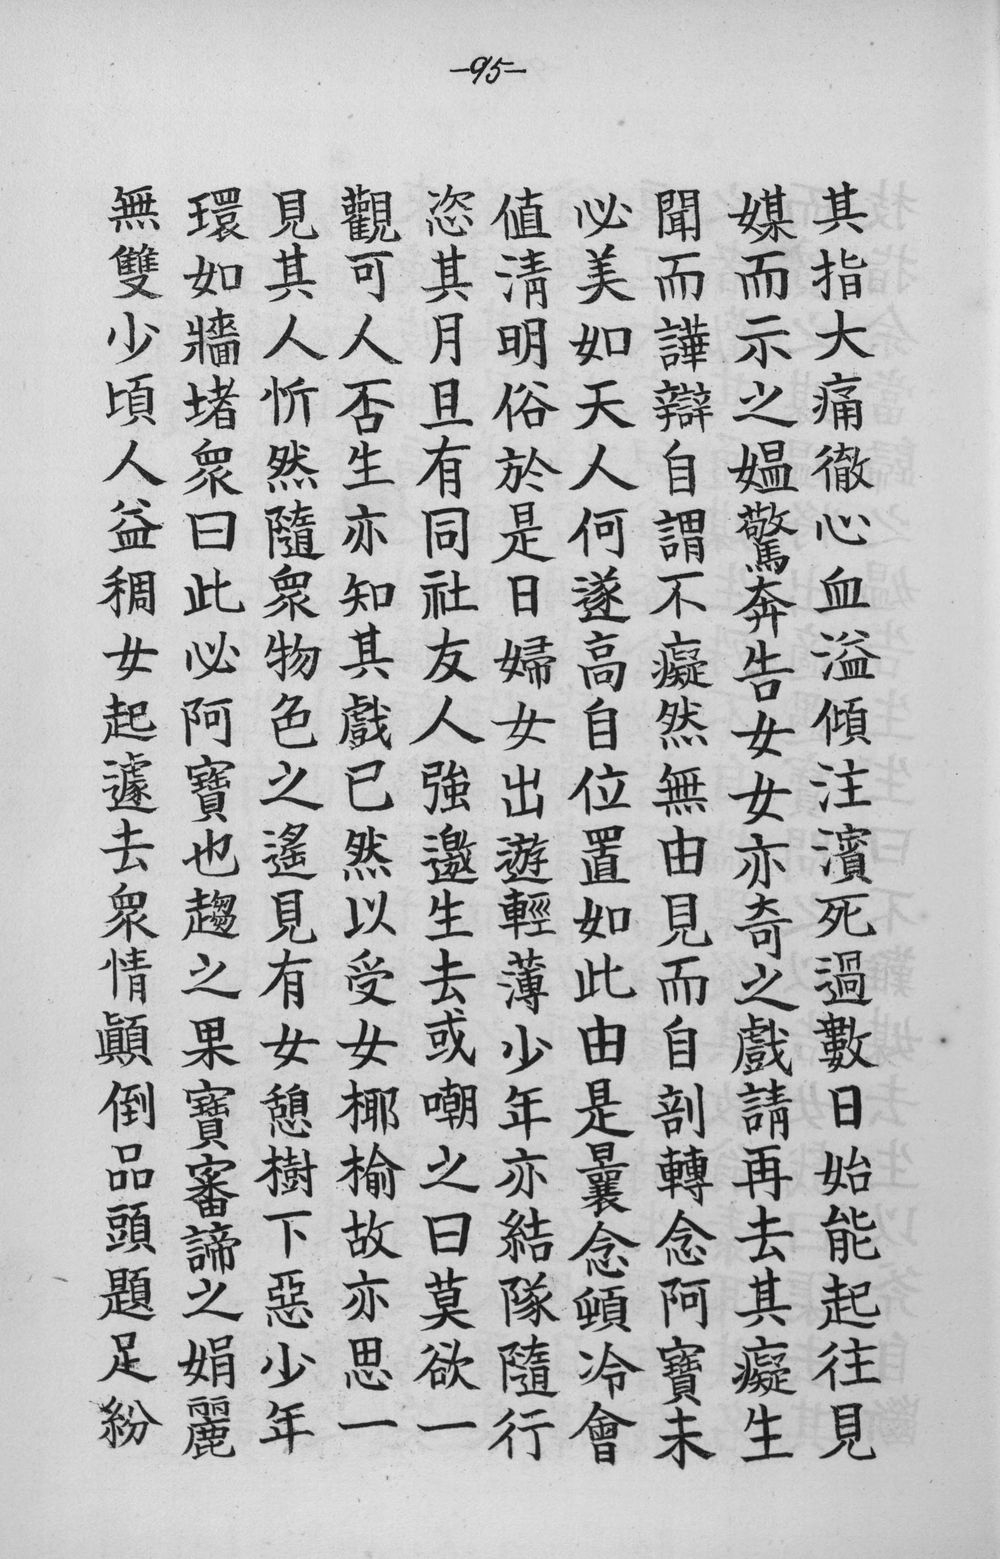 —95—
其指大痛徹心血溢傾注濱死過數日始能起往見
媒而示之媼驚奔告女女亦奇之戲請再去其癡生
聞而譁辯自謂不癡然無由見而自剖轉念阿寶未
必美如天人何遂高自位置如此由是曩念頓冷會
值淸明俗於是日婦女出遊輕薄少年亦結隊隨行
恣其月旦有同社友人強邀生去或嘲之曰莫欲一
觀可人否生亦知其戲已然以受女椰榆故亦思一
見其人忻然隨衆物色之遙見有女憩樹下惡少年
環如牆堵衆曰此必阿寶也趨之果寶審諦之娟麗
無雙少頃人益稠女起遽去衆情顚倒品頭題足紛